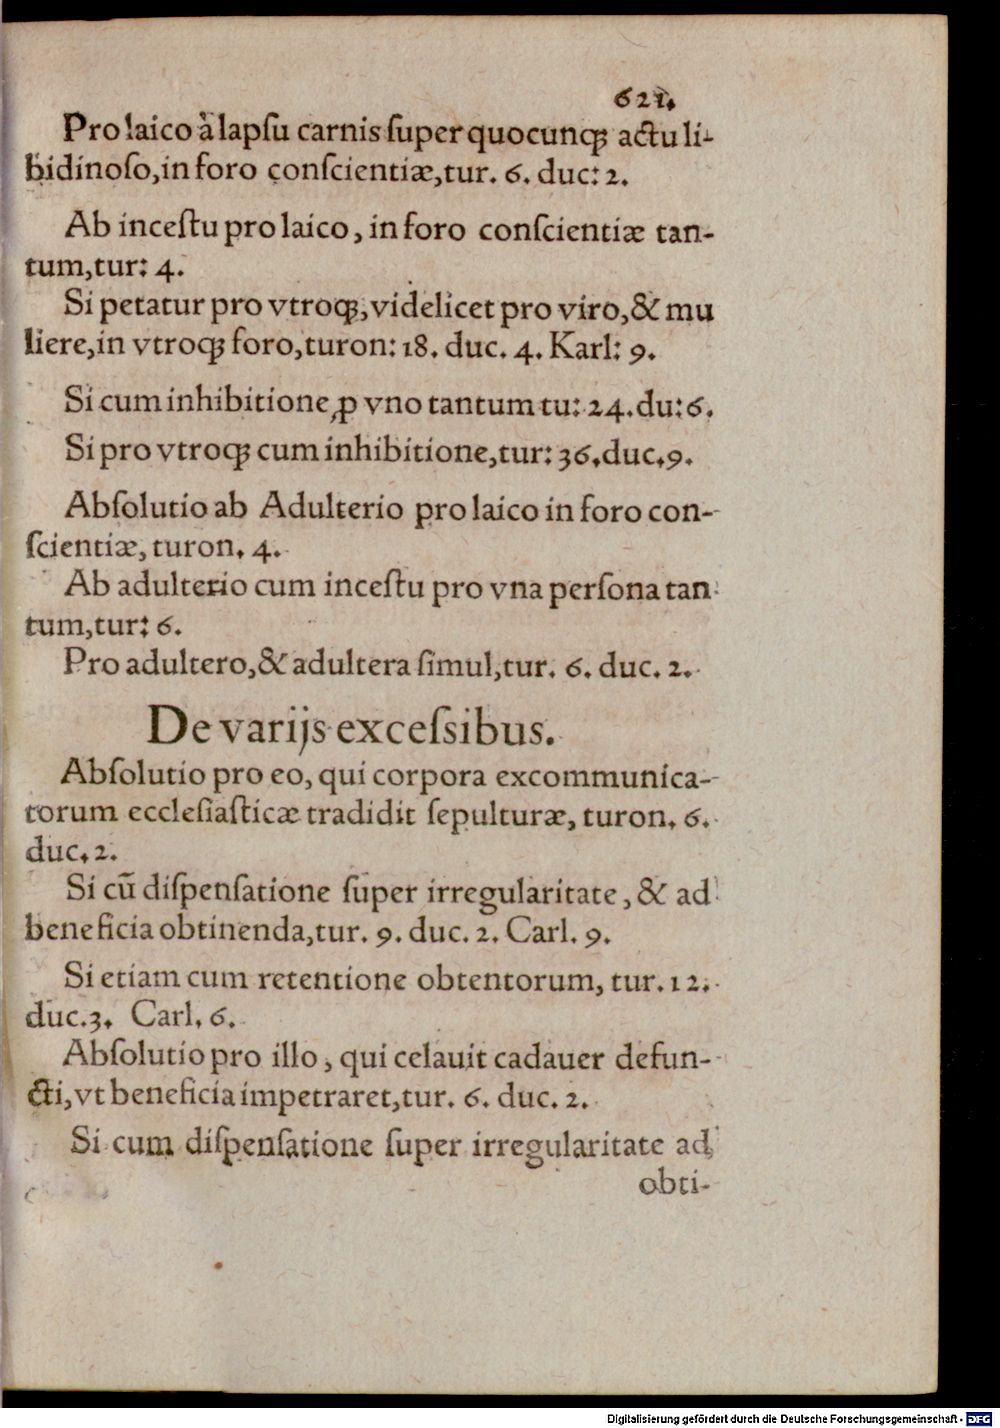 621.
Pro laico à lapſu carnis ſuper quocunqꝫ actu li-
bidinoſo, in foro conſcientiæ, tur. 6. duc: 2.
Ab inceſtu pro laico, in foro conſcientiæ tan-
tum, tur: 4.
Si petatur pro vtroqꝫ, videlicet pro viro, & mu
liere, in vtroqꝫ foro, turon: 18. duc. 4. Karl: 9.
Si cum inhibitione ꝓ vno tantum tu: 24. du: 6.
Si pro vtroqꝫ cum inhibitione, tur: 36. duc. 9.
Abſolutio ab Adulterio pro laico in foro con-
ſcientiæ, turon. 4.
Ab adulterio cum inceſtu pro vna perſona tan
tum, tur: 6.
Pro adultero, & adultera ſimul, tur. 6. duc. 2.
De varijs exceſsibus.
Abſolutio pro eo, qui corpora excommunica-
torum eccleſiaſticæ tradidit ſepulturæ, turon. 6.
duc. 2.
Si cū diſpenſatione ſuper irregularitate, & ad
beneficia obtinenda, tur. 9. duc. 2. Carl. 9.
Si etiam cum retentione obtentorum, tur. 12.
duc. 3. Carl. 6.
Abſolutio pro illo, qui celauit cadauer defun-
cti, vt beneficia impetraret, tur. 6. duc. 2.
Si cum diſpenſatione ſuper irregularitate ad
obti-
Digitalisierung gefördert durch die Deutsche Forschungsgemeinschaft - DFG